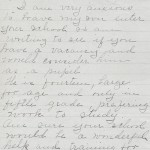 I am very anxious
to have my son enter
your school so am
writing to see if you
have a vacancy and
would consider him
as a pupil
He is fourteen, large
for age and only in
fifth grade, preferring
work to study
I am sure your school
would be a wonderful
help and training for